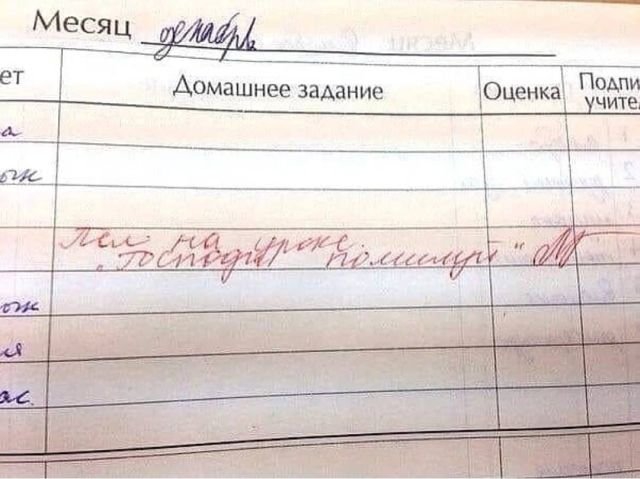 Месяц декабрь
ет Домашнее задание Оценка Подпи
учите
а
ык
Пел на уроке
"Господи помилуй"
ык
ия